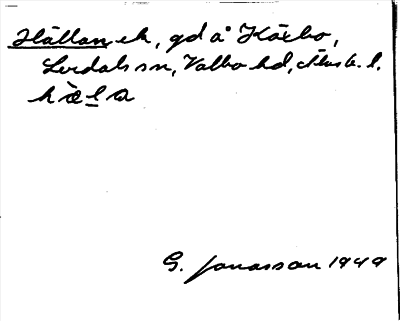 Hällan, ek, gd å Kärbo,
Lerdals sn, Valbo hd, Älvsb. l.
hæ̀la
G. Jonasson 1949